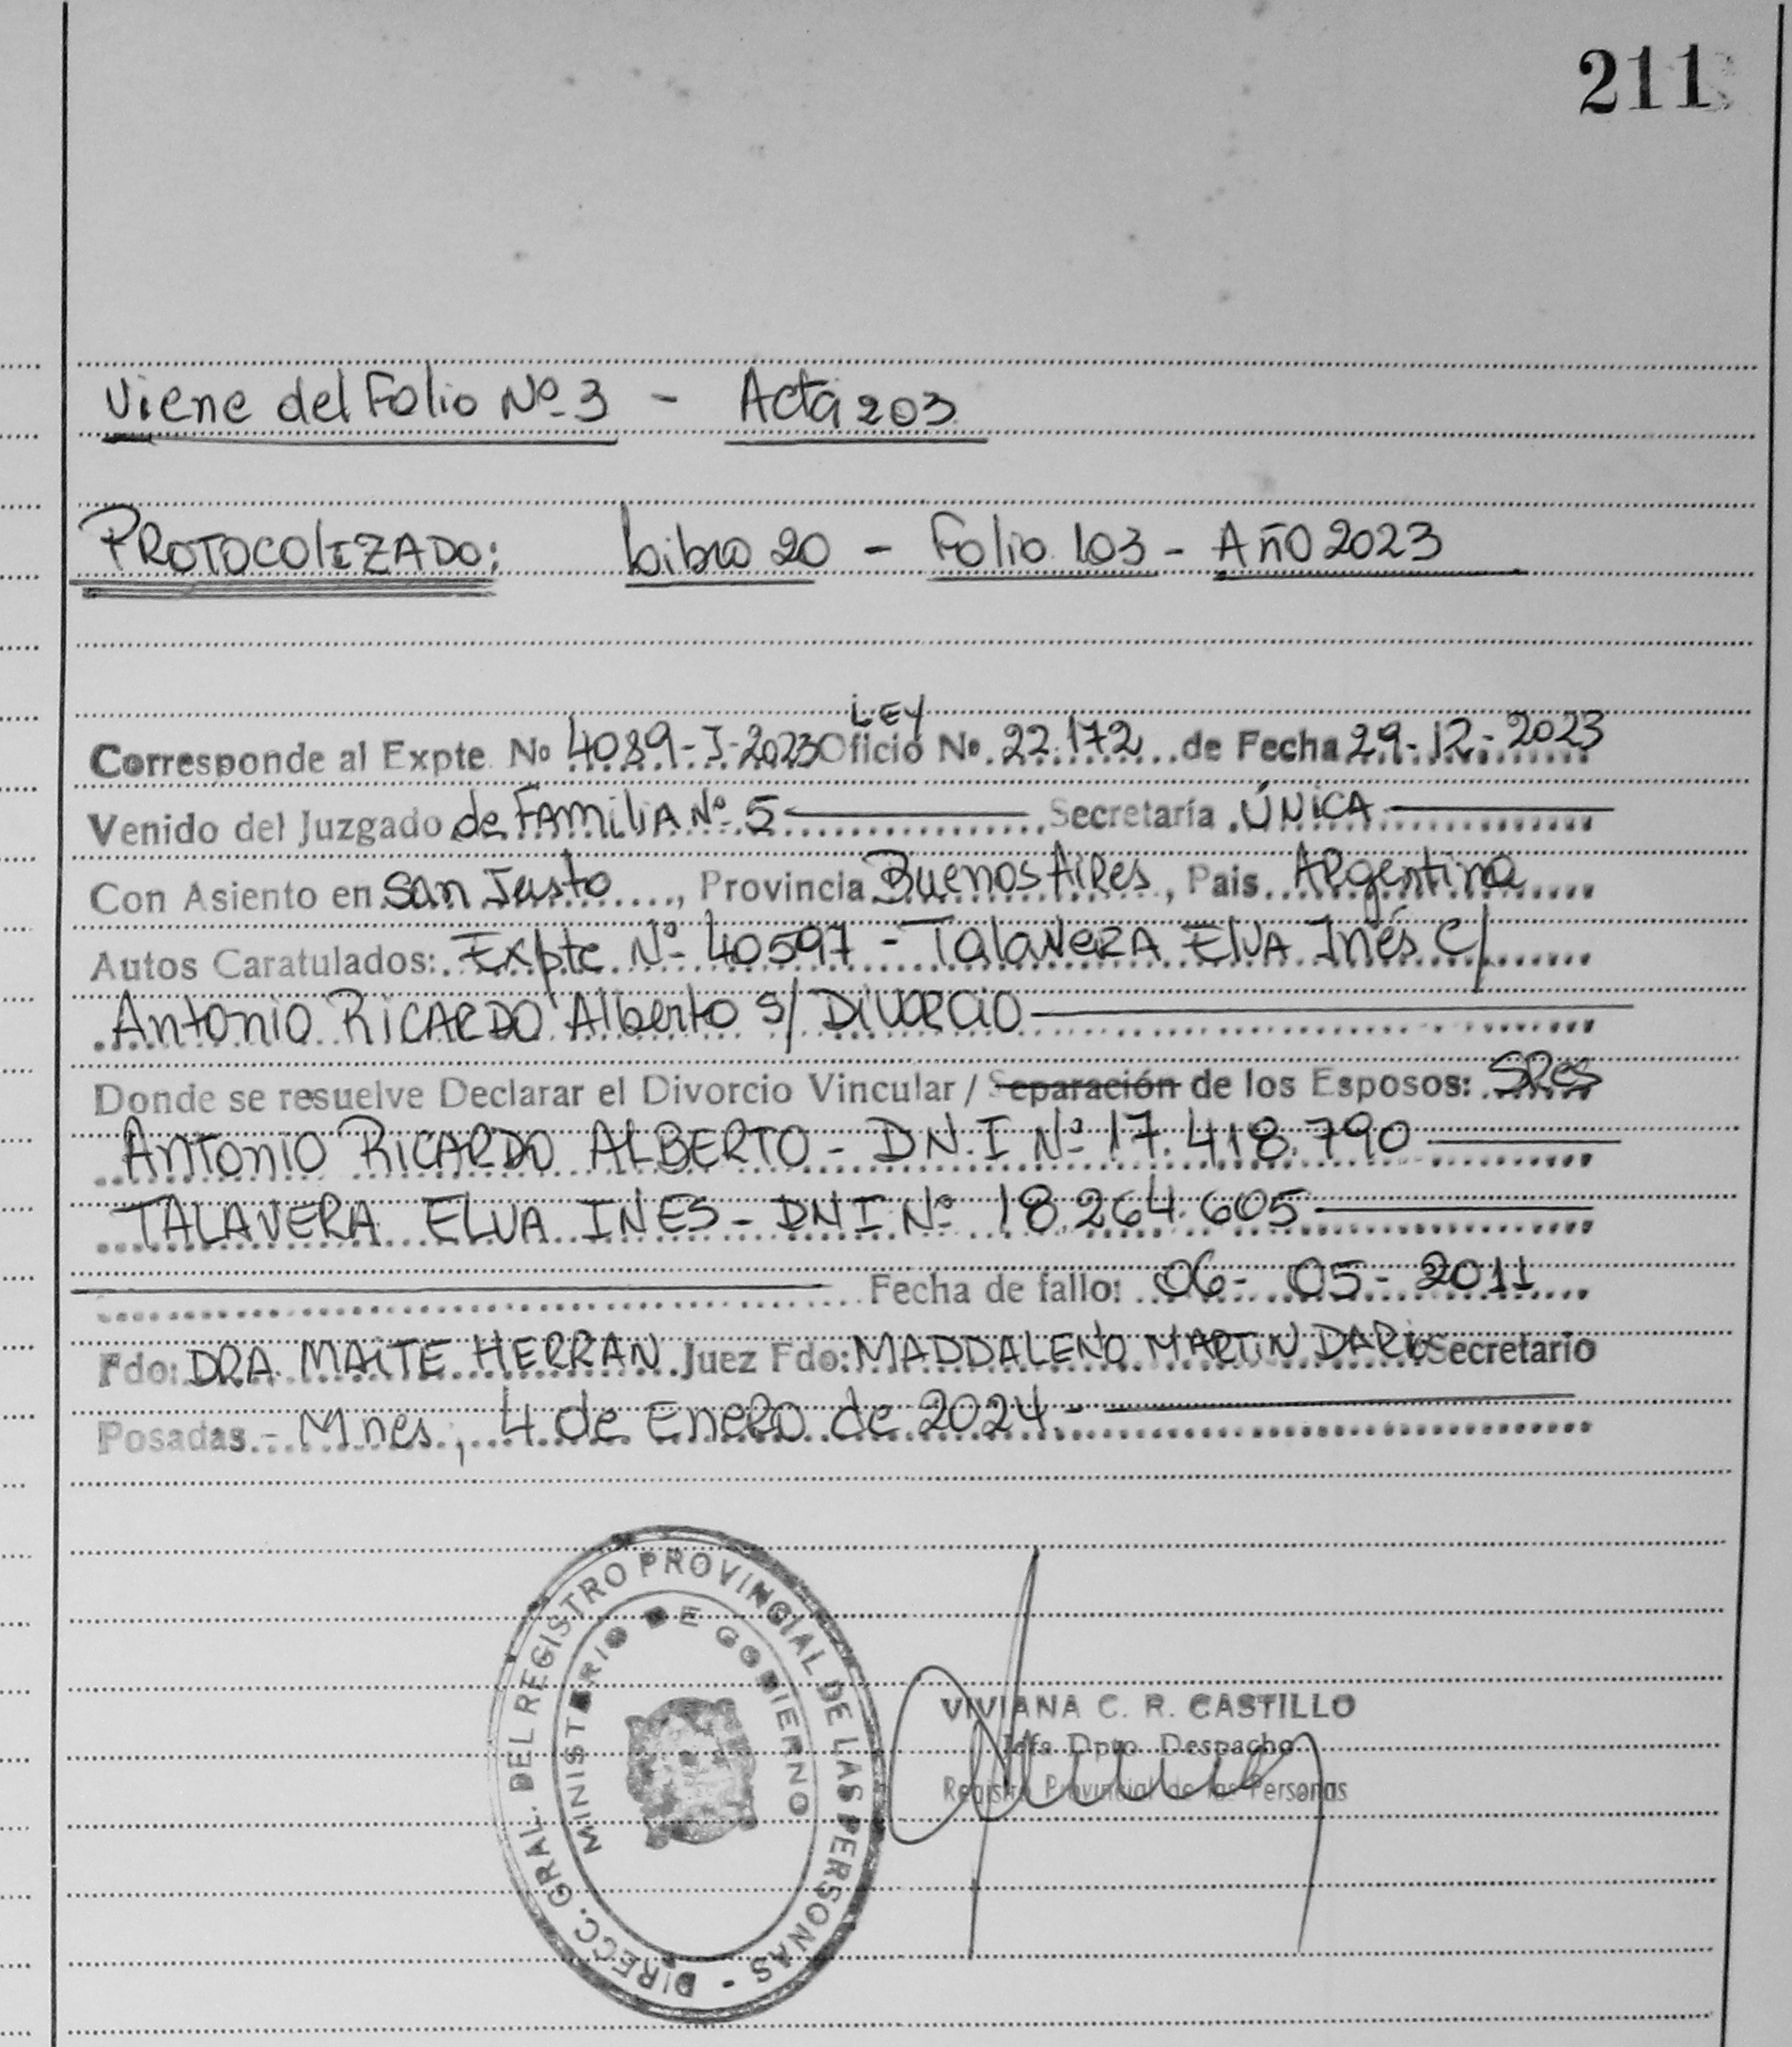 211
Viene del Folio Nº 3 - Acta 203
PROTOCOLIZADO: Libro 20 - Folio 103 - AÑO 2023
LEY
Corresponde al Expte. Nº 4089-I-2023 Oficio Nº 22.172 de Fecha 29-12-2023
Venido del Juzgado de Familia Nº 5 Secretaría ÚNICA
Con Asiento en San Justo, Provincia Buenos Aires, Pais Argentina
Autos Caratulados: Expte Nº 40597 - Talavera Elva Inés C/
Antonio Ricardo Alberto S/ Divorcio
Donde se resuelve Declarar el Divorcio Vincular / Separación de los Esposos: SRes
ANTONIO RICARDO ALBERTO - D.N.I Nº 17.418.790
TALAVERA ELVA INES - DNI Nº 18.264.605
Fecha de fallo: 06-05-2011
Fdo: DRA. MAITE HERRAN Juez Fdo: MADDALENO MARTIN DARIO Secretario
Posadas.- Mnes, 4 de Enero de 2024.-
DIRECC. GRAL. DEL REGISTRO PROVINCIAL DE LAS PERSONAS -
MINISTERIO DE GOBIERNO
VIVIANA C. R. CASTILLO
Jefa Dpto. Despacho
Registro Provincial de las Personas